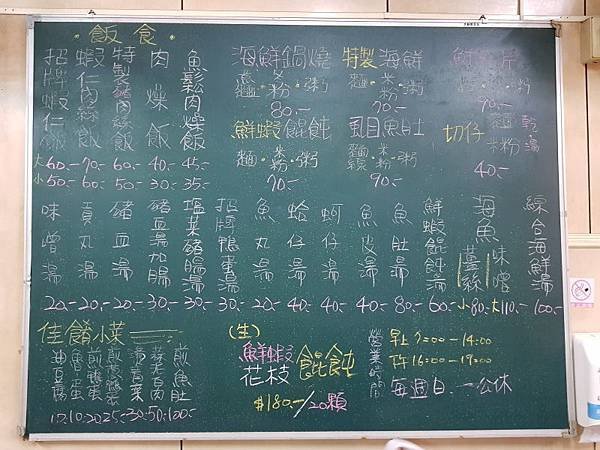 飯食
招牌蝦仁飯 大60.- 小50.-
蝦仁肉絲飯 70.- 60.-
特製豬肉絲飯 60.- 50.-
肉燥飯 40.- 30.-
魚鬆肉燥飯 45.- 35.-
海鮮鍋燒
意麵·冬粉·粥
80.-
特製海鮮
麵·米粉·粥
70.-
麵·米粉·粥
70.-
鮮蝦餛飩
麵·米粉·粥
70.-
虱目魚肚
麵線·米粉·粥
90.-
切仔
麵 粉 乾·湯
40.-
味噌湯 20.-
貢丸湯 20.-
豬血湯 20.-
豬血湯加腸 30.-
塩菜豬腸湯 30.-
招牌鴨蛋湯 30.-
魚丸湯 20.-
蛤仔湯 40.-
蚵仔湯 40.-
魚皮湯 40.-
魚肚湯 80.-
鮮蝦餛飩湯 60.-
海魚 薑絲 味噌 小80.- 大110.-
綜合海鮮湯 100.-
佳餚小菜
油豆腐 10
魯蛋 10
煎鴨蛋 20
25.-
燙青菜 30
蒜老白肉 50
煎魚肚 100.-
(生)
鮮蝦
花枝
餛飩
$180.-/20顆
營業時間
早上7:00-14:00
下午16:00-19:00
每週日.一公休